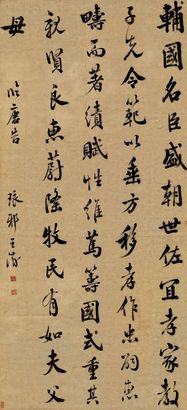 輔國名臣盛朝世佐宜孝家教
子先令範以垂方移孝作忠嗣惠
疇而著績賦性維篤籌國式重其
親賢良惠蔚隆牧民有如夫父
母
臨唐告 琅邪王澍